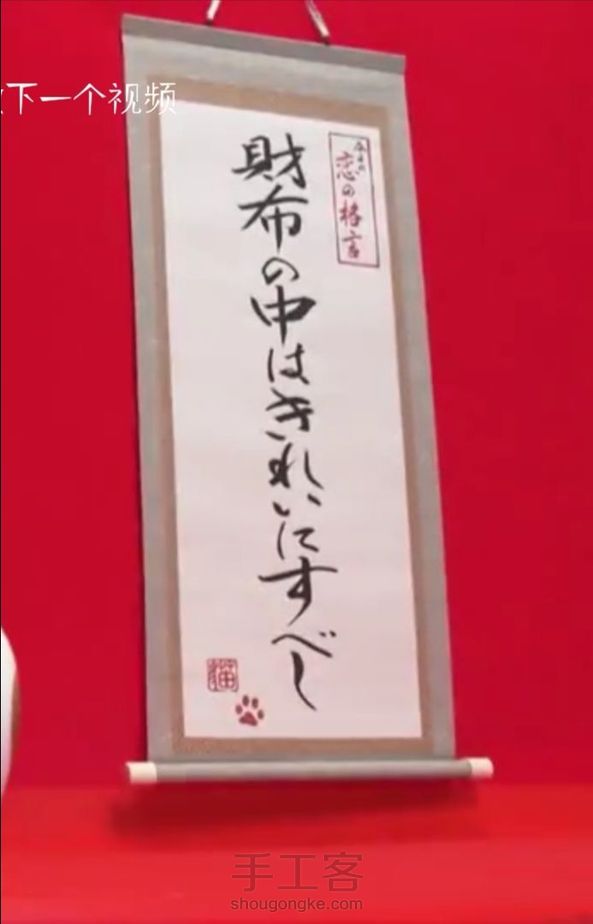 下一个视频
今日の
恋の格言
財布の中はきれいにすべし
猫
手工客
shougongke.com